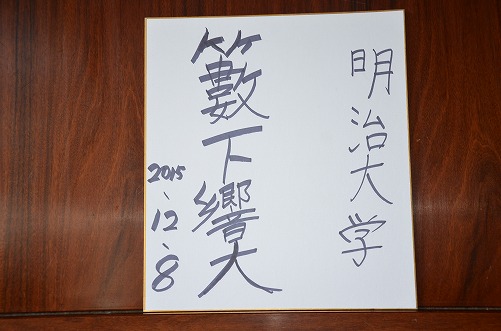 明治大学
籔下響大
2015、12、8